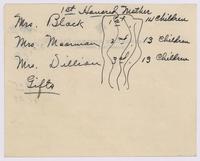 1st Honored Mother
Mrs. Black 1st 14 Children
Mrs. Moorman 2nd 13 Children
Mrs. Dillian 3rd 13 Children
Gifts